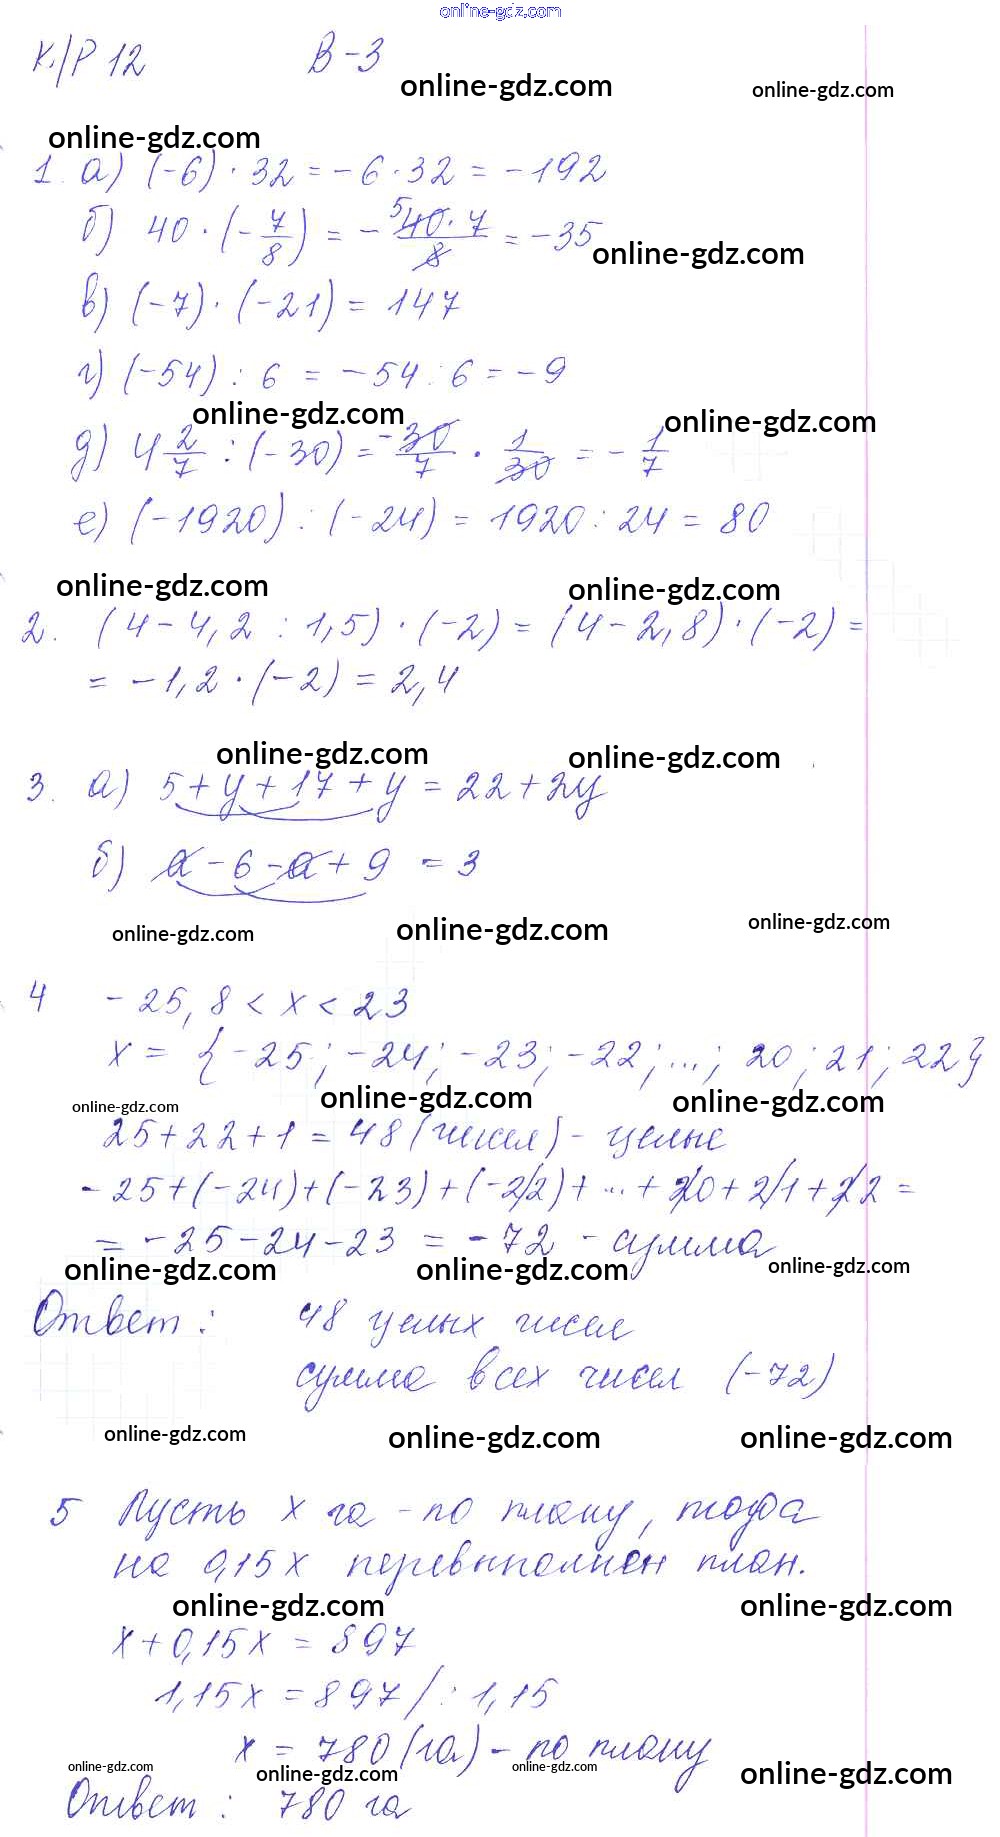 online-gdz.com
К/Р 12 В-3
online-gdz.com online-gdz.com
online-gdz.com
1. а) (-6) · 32 = -6 · 32 = -192
б) 40 · (-7/8) = - 5 40·7/8 = -35
online-gdz.com
в) (-7) · (-21) = 147
г) (-54) : 6 = -54 : 6 = -9
online-gdz.com online-gdz.com
д) 4 2/7 : (-30) = -30/7 · 1/30 = -1/7
е) (-1920) : (-24) = 1920 : 24 = 80
online-gdz.com online-gdz.com
2. (4 - 4,2 : 1,5) · (-2) = (4 - 2,8) · (-2) =
= -1,2 · (-2) = 2,4
online-gdz.com online-gdz.com
3. а) 5 + y + 17 + y = 22 + 2y
б) a - 6 - a + 9 = 3
online-gdz.com online-gdz.com online-gdz.com
4 -25,8 < x < 23
x = {-25; -24; -23; -22; ...; 20; 21; 22}
online-gdz.com online-gdz.com online-gdz.com
25 + 22 + 1 = 48 (чисел) - целые
-25 + (-24) + (-23) + (-22) + ... + 20 + 21 + 22 =
= -25 - 24 - 23 = -72 - сумма
online-gdz.com online-gdz.com online-gdz.com
Ответ: 48 целых чисел
сумма всех чисел (-72)
online-gdz.com online-gdz.com online-gdz.com
5 Пусть x га - по плану, тогда
на 0,15x перевыполнен план.
online-gdz.com online-gdz.com
x + 0,15x = 897
1,15x = 897 /: 1,15
x = 780 (га) - по плану
online-gdz.com online-gdz.com online-gdz.com online-gdz.com
Ответ: 780 га